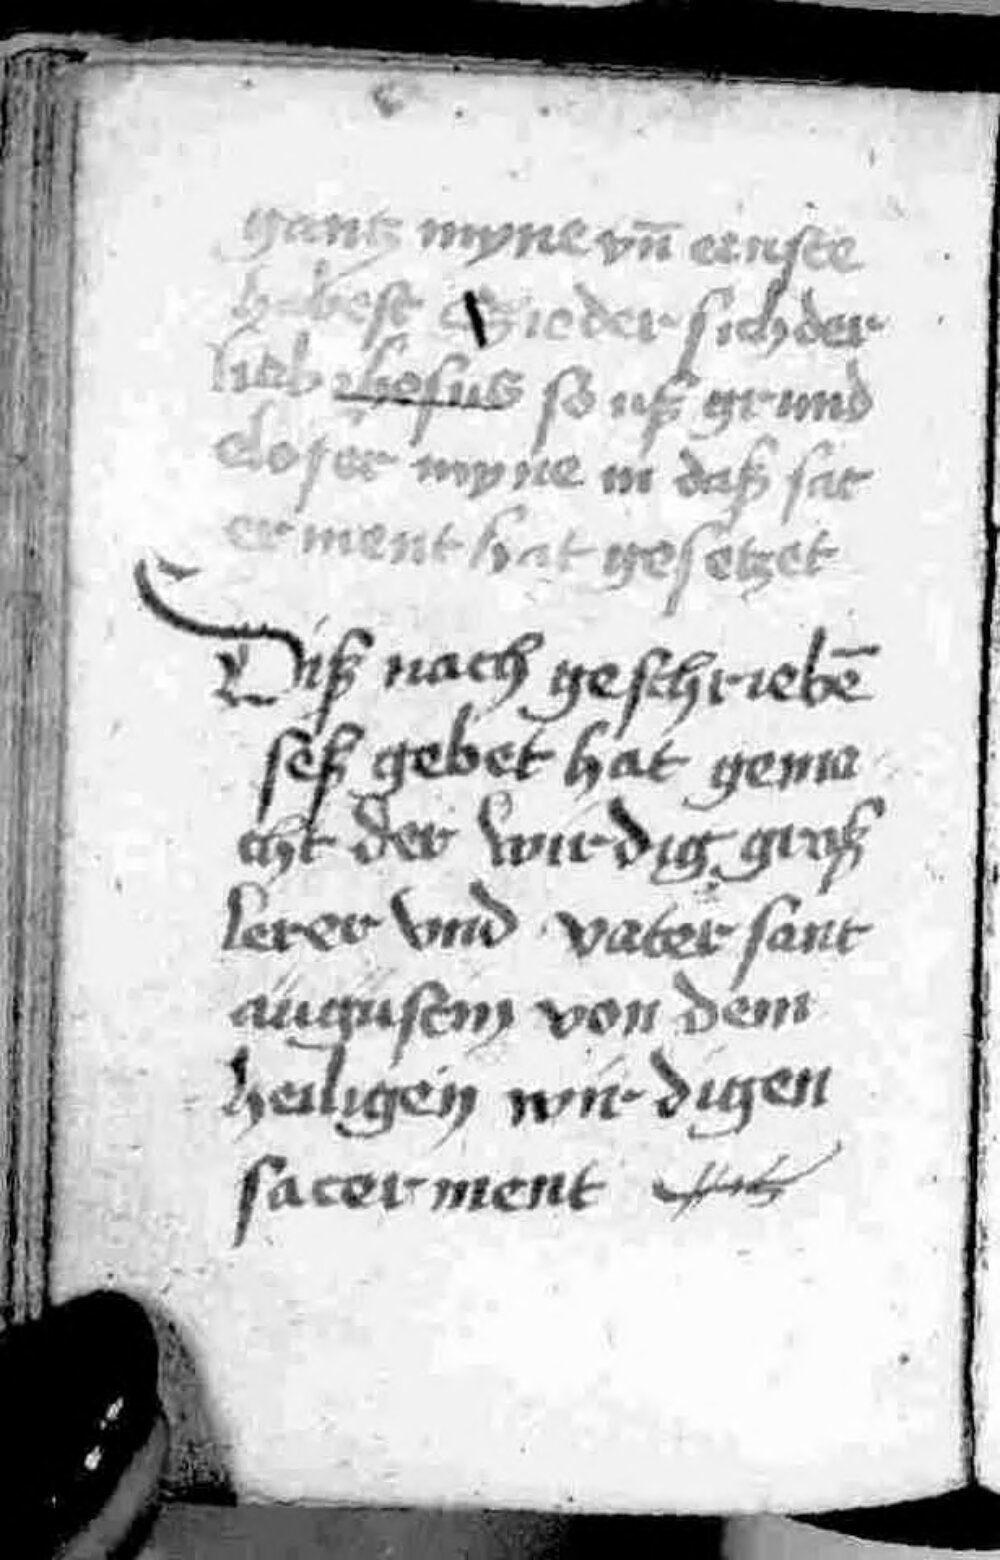 gantz myne vn̄ ernste
habest Wieder sich der
lieb ihesus so uß grund
eloser myne in daß sac
erment hat gesetzet
Diß nach geschriebē
seß gebet hat gema
cht der wirdig groß
lerer vnd vater sant
augustin von dem
heiligen wirdigen
sacerment